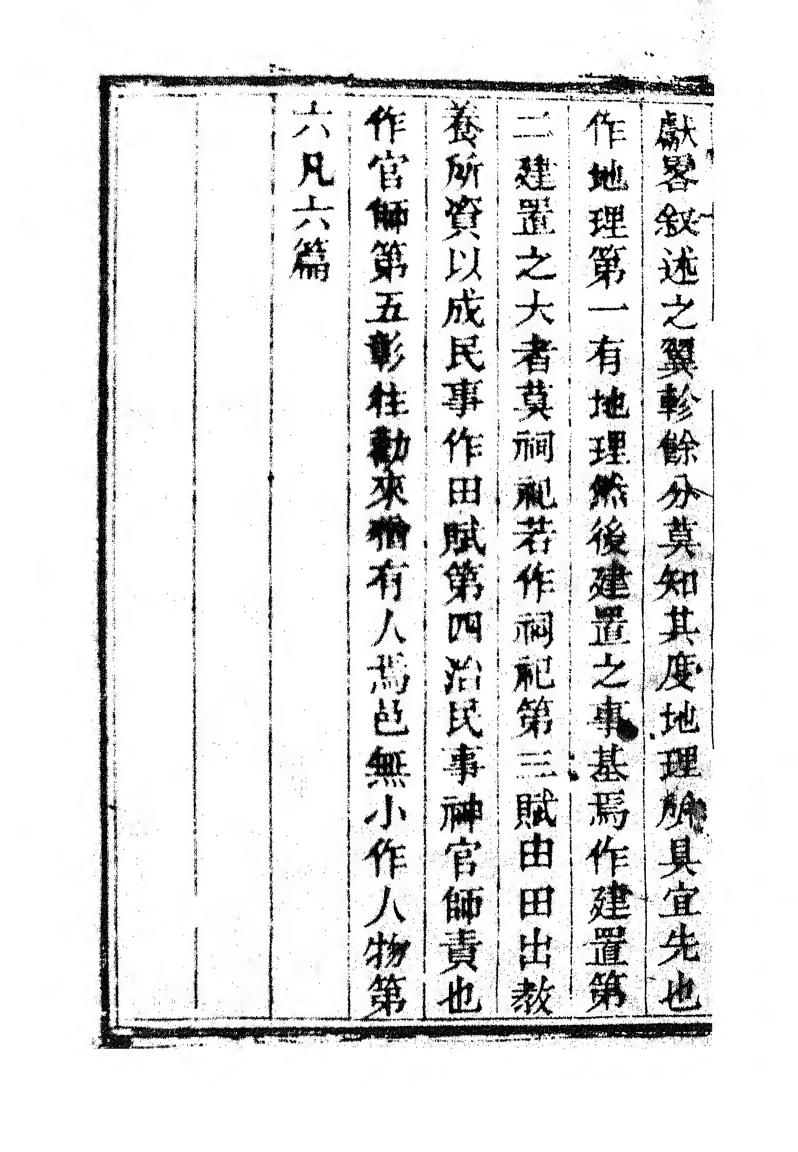 獻畧叙述之翼軫餘分莫知其度地理所具宜先也
作地理第一有地理然後建置之事基焉作建置第
二建置之大者莫祠祀若作祠祀第三賦由田出教
養所資以成民事作田賦第四治民事神官師責也
作官師第五彰往勸來猶有人焉邑無小作人物第
六凡六篇